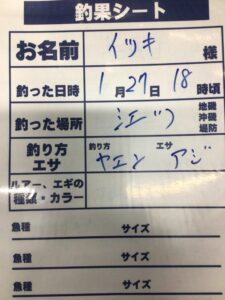 釣果シート
お名前 イツキ 様
釣った日時 1月27日 18時頃
釣った場所 江ツ 地磯 沖磯 堤防
釣り方 エサ 釣り方 ヤエン エサ アジ
ルアー、エギの種類・カラー
魚種 サイズ
魚種 サイズ
魚種 サイズ